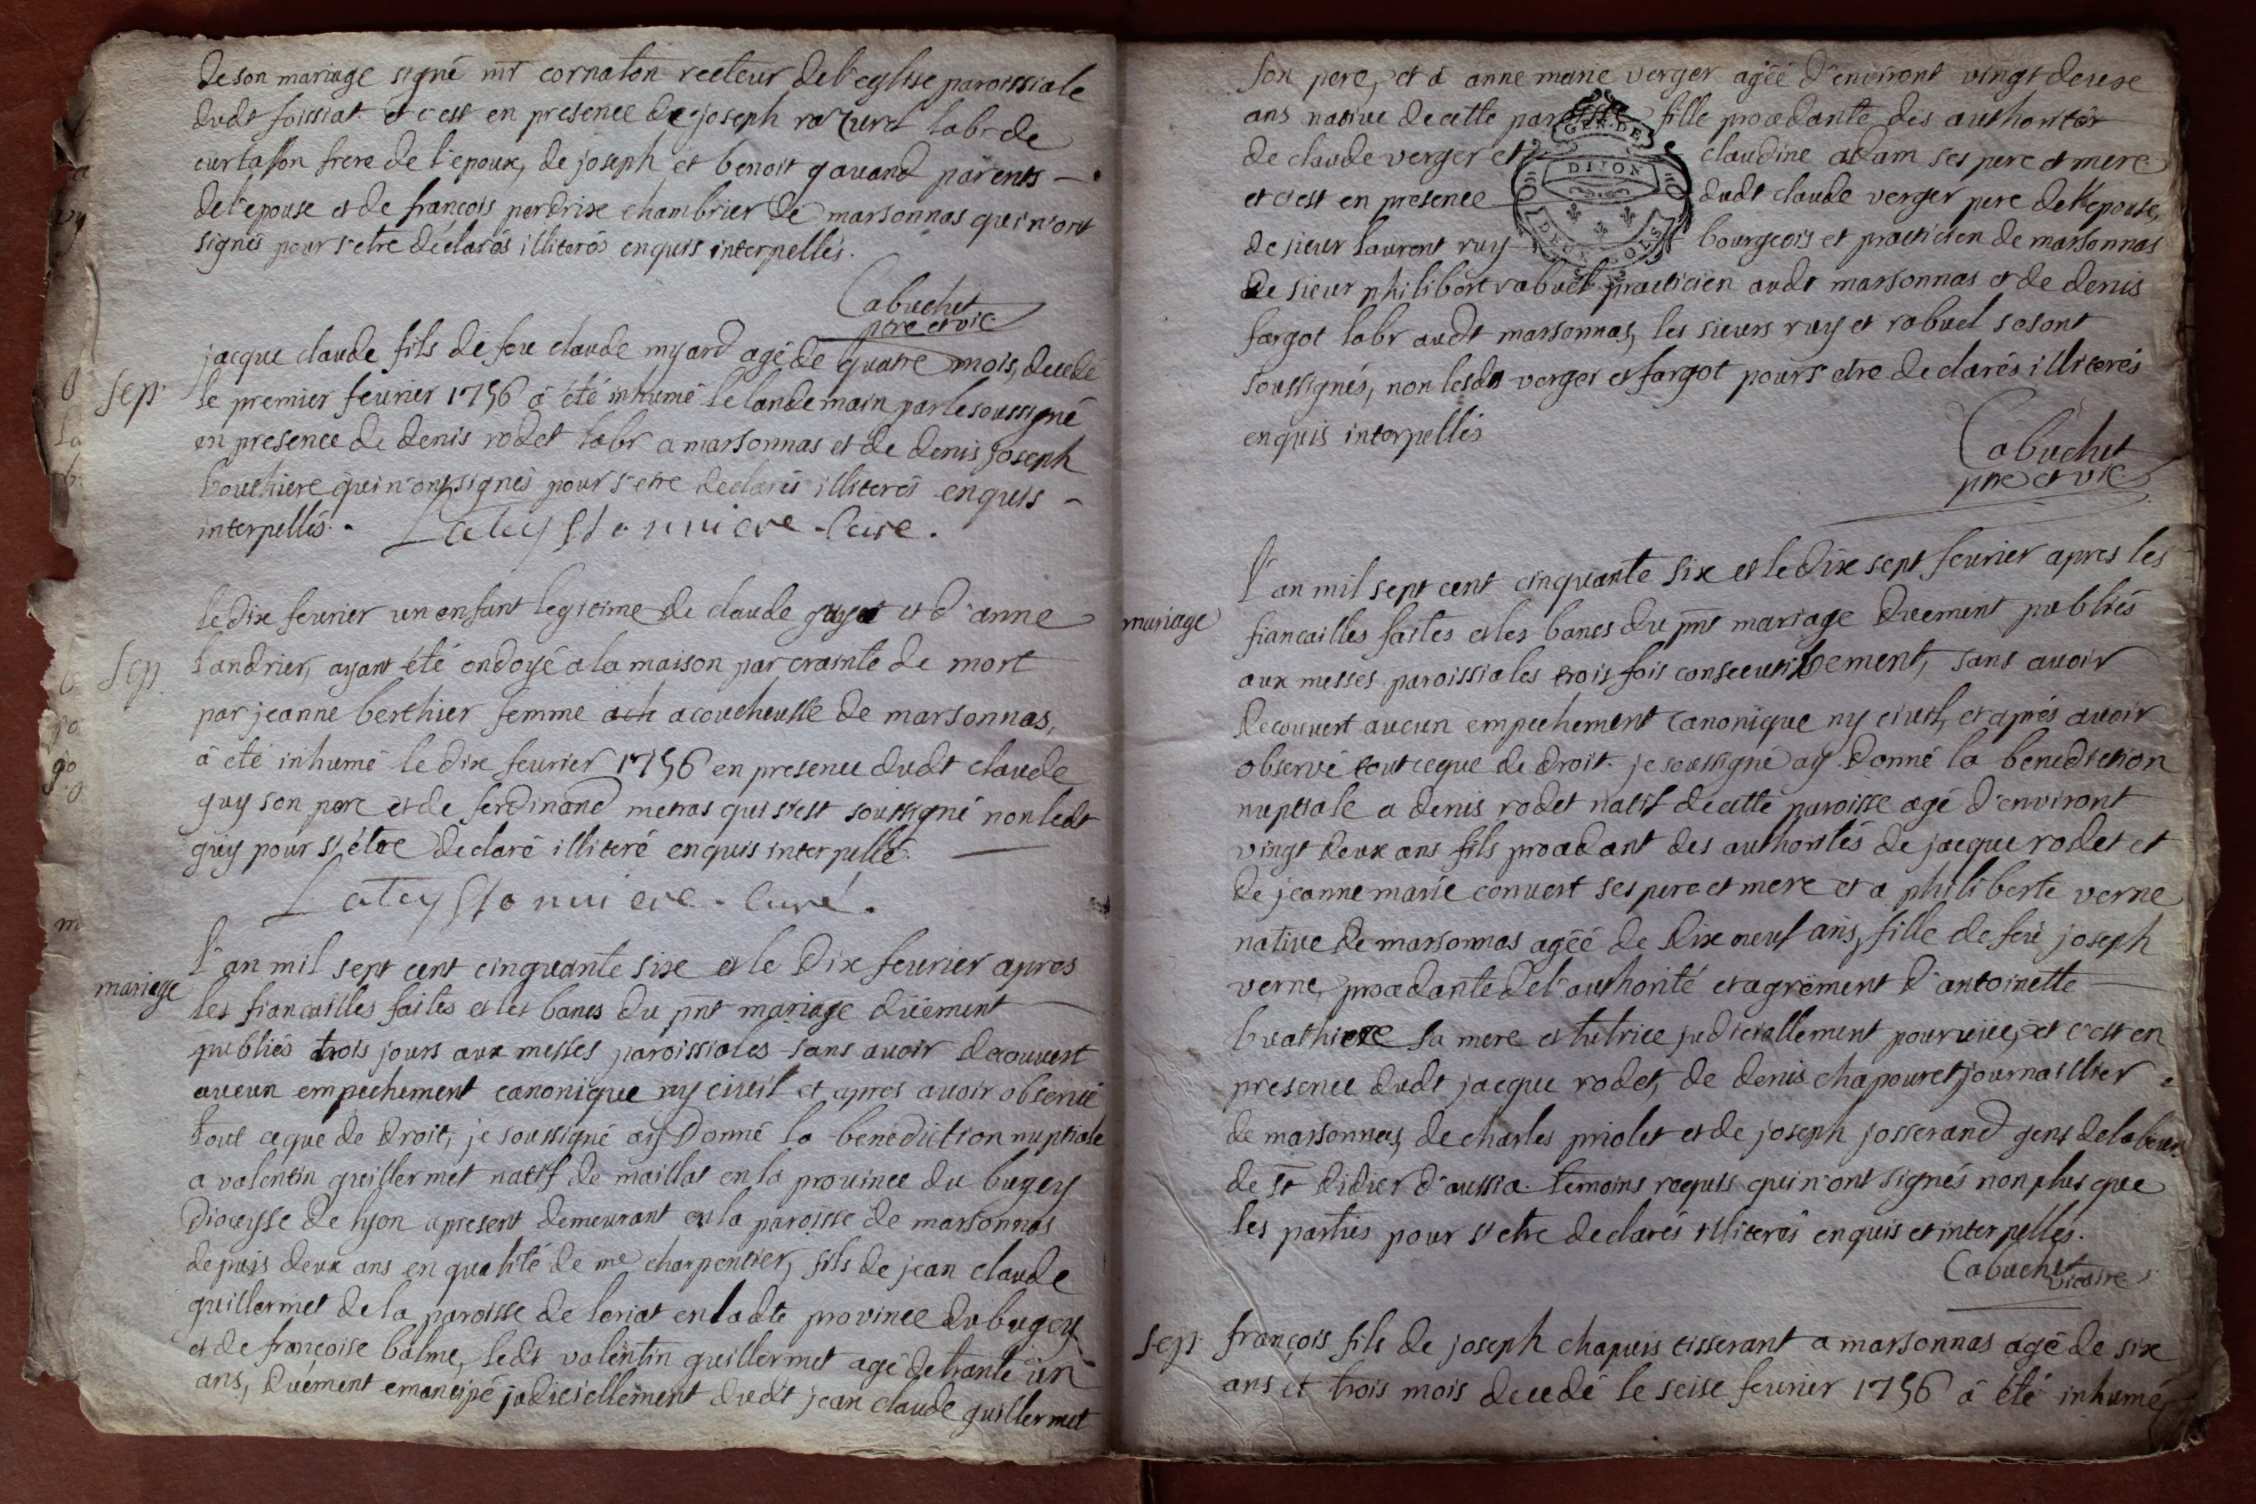 de son mariage signé mr cornaton recteur de l'eglise paroissiale
dudt foissiat et c'est en presence de joseph labr de
curtafon frere de l'epoux, de joseph et benoit gavand parents
de l'epouse et de françois perdrix chambrier de marsonnas qui n'ont
signés pour s'etre déclarés illiterés enquis interpellés.
Cabuchet
ptre et vic
jacque claude fils de feu claude myard agé de quatre mois, decedé
sep. le premier feurier 1756 a été inhumé le landemain par le soussigné
en presence de denis rodet labr a marsonnas et de denis joseph
bouthiere qui n'ont signés pour s'etre declarés illiterés enquis
interpellés. curé.
le dix feurier un enfant legitime de claude guy et d'anne
sep. landrier, ayant été ondoyé a la maison par crainte de mort
par jeanne berthier femme ach acoucheusse de marsonnas,
a été inhumé le dix feurier 1756 en presence dudt claude
guy son pere et de ferdinand metras qui s'est soussigné non ledt
guy pour s'étre declaré illiteré enquis interpellé.
curé.
l'an mil sept cent cinquante six et le dix feurier apres
mariage les fiancailles faites et les bancs du pnt mariage düement
publiés trois jours aux messes paroissiales sans avoir decouvert
aucun empechement canonique ny civil et apres avoir observé
tout ce que de droit, je soussigné ay donné la benediction nuptiale
a valentin guillermet natif de maillat en la province du bugey
diocysse de lyon apresent demeurant en la paroisse de marsonnas
depuis deux ans en qualité de me charpentier, fils de jean claude
guillermet de la paroisse de loriat en ladte province du bugey
et de françoise balme, ledt valentin guillermet agé de trante un
ans, duëment emancipé judiciellement dudt jean claude guillermet
son pere, et a anne marie verger agéé d'environt vingt deuxe
ans native de cette paroisse fille procedante des authorités
de claude verger et claudine adam ses pere et mere
et c'est en presence dudt claude verger pere de l'epouse,
de sieur laurent ruy bourgeois et practicien de marsonnas
de sieur philibert rabuel practicien audt marsonnas et de denis
fargot labr audt marsonnas, les sieurs ruy et rabuel se sont
soussignés, non lesdts verger et fargot pour s'etre declarés illiterés
enquis interpellés
GEN. DE
DIJON
DEUX SOLS
Cabuchet
ptre et vic
l'an mil sept cent cinquante six et le dix sept feurier apres les
mariage fiancailles faites et les bancs du pnt mariage duëment publiés
aux messes paroissiales trois fois consecutivement, sans avoir
decouvert aucun empechement canonique ny civil, et aprés avoir
observé tout ce que de droit. je soussigné ay donné la benediction
nuptiale a denis rodet natif de cette paroisse agé d'environt
vingt deux ans fils procedant des authorités de jacque rodet et
de jeanne marie convert ses pere et mere et a philiberte verne
native de marsonnas agéé de dix neuf ans, fille de feu joseph
verne, procedante de l'authorité et agrément d'antoinette
buathiere sa mere et tutrice judiciellement pourvüe, et c'est en
presence dudt jacque rodet, de denis chapouret journaillier
de marsonnas, de charles priolet et de joseph josserand gens de labeur
de st didier d'aussia. temoins requis qui n'ont signés non plus que
les parties pour s'etre declarés illiterés enquis et interpellés.
Cabuchet
vicaire
sep. françois fils de joseph chapuis tisserant a marsonnas agé de six
ans et trois mois decedé le seise feurier 1756 a été inhumé